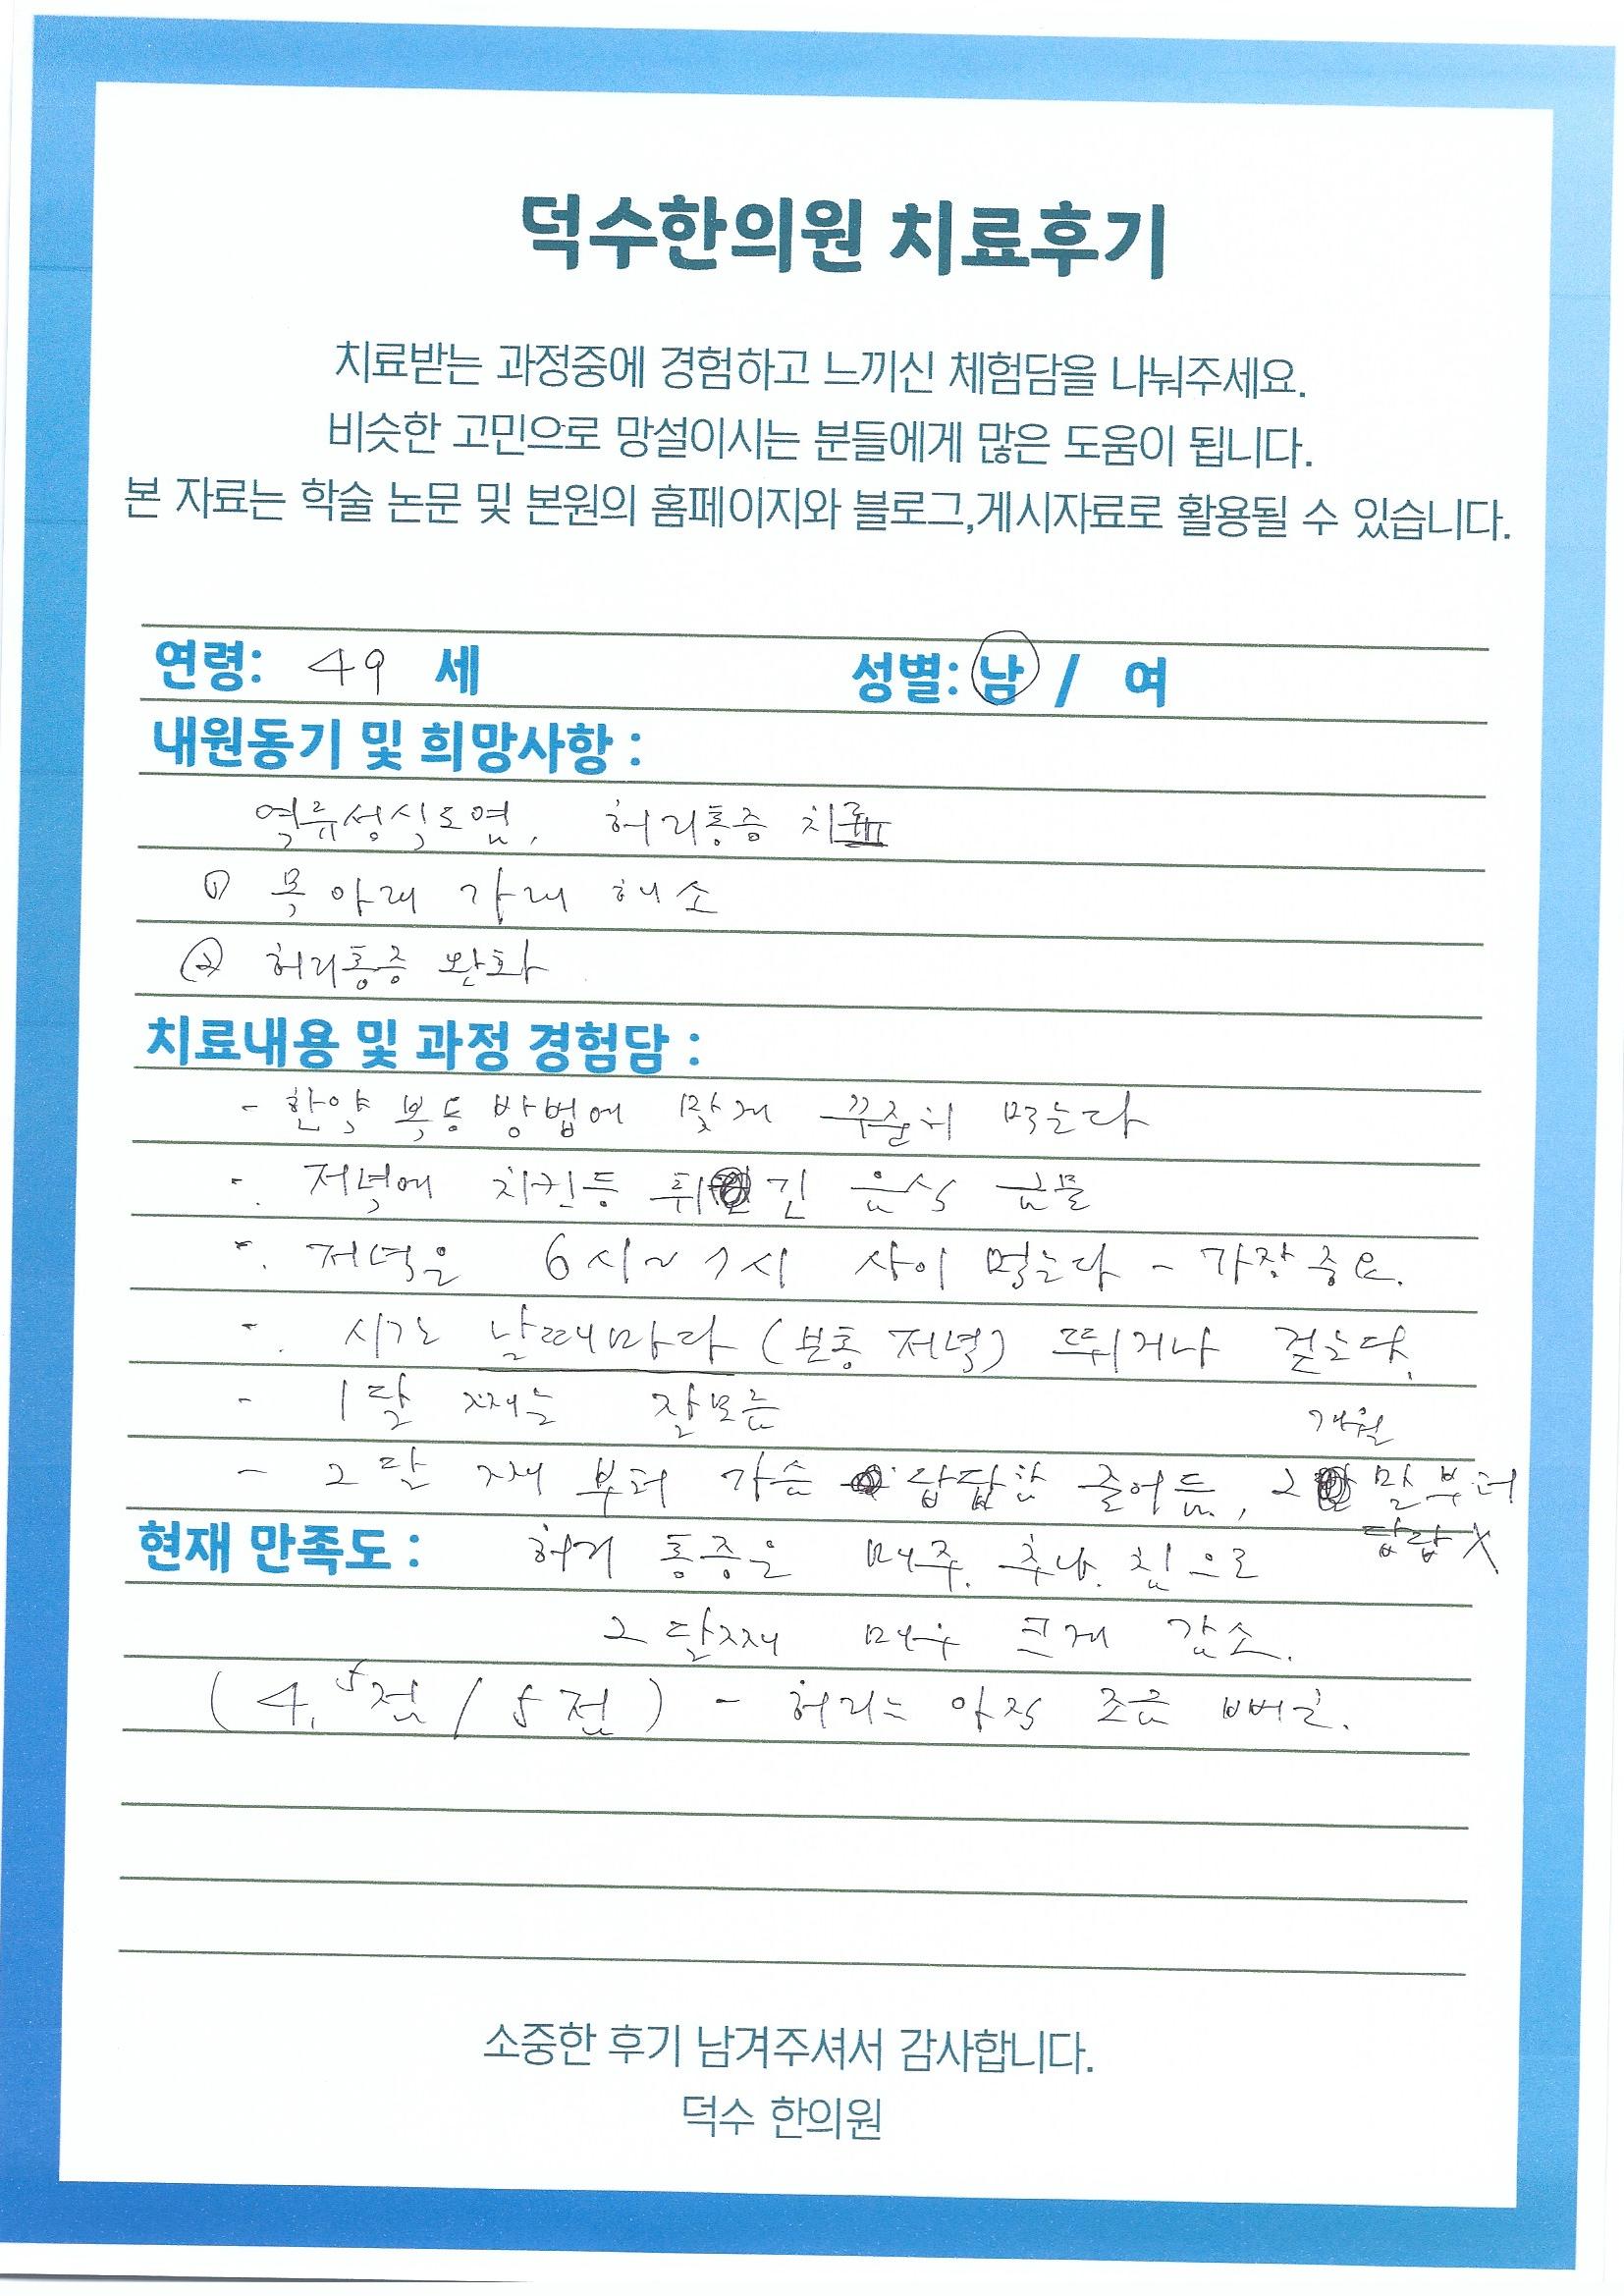 덕수한의원 치료후기
치료받는 과정중에 경험하고 느끼신 체험담을 나눠주세요.
비슷한 고민으로 망설이시는 분들에게 많은 도움이 됩니다.
본 자료는 학술 논문 및 본원의 홈페이지와 블로그,게시자료로 활용될 수 있습니다.
연령: 49 세 성별: 남 / 여
내원동기 및 희망사항 :
역류성식도염, 허리통증 치료
① 목 아래 가래 해소
② 허리통증 완화
치료내용 및 과정 경험담 :
- 한약 복용 방법에 맞게 꾸준히 먹는다
- 저녁에 치킨등 튀긴 음식 금물
- 저녁은 6시~7시 사이 먹는다 - 가장 중요.
- 시간 날때마다 (보통 저녁) 뛰거나 걷는다.
- 1달 째는 잘모름
- 2달 째 부터 가슴 답답함 줄어듬, 2개월 말부터 답답X
현재 만족도 : 허리 통증은 매주. 추나. 침으로
2달째 매우 크게 감소.
(4.5점 / 5점) - 허리는 아직 조금 뻐근.
소중한 후기 남겨주셔서 감사합니다.
덕수 한의원